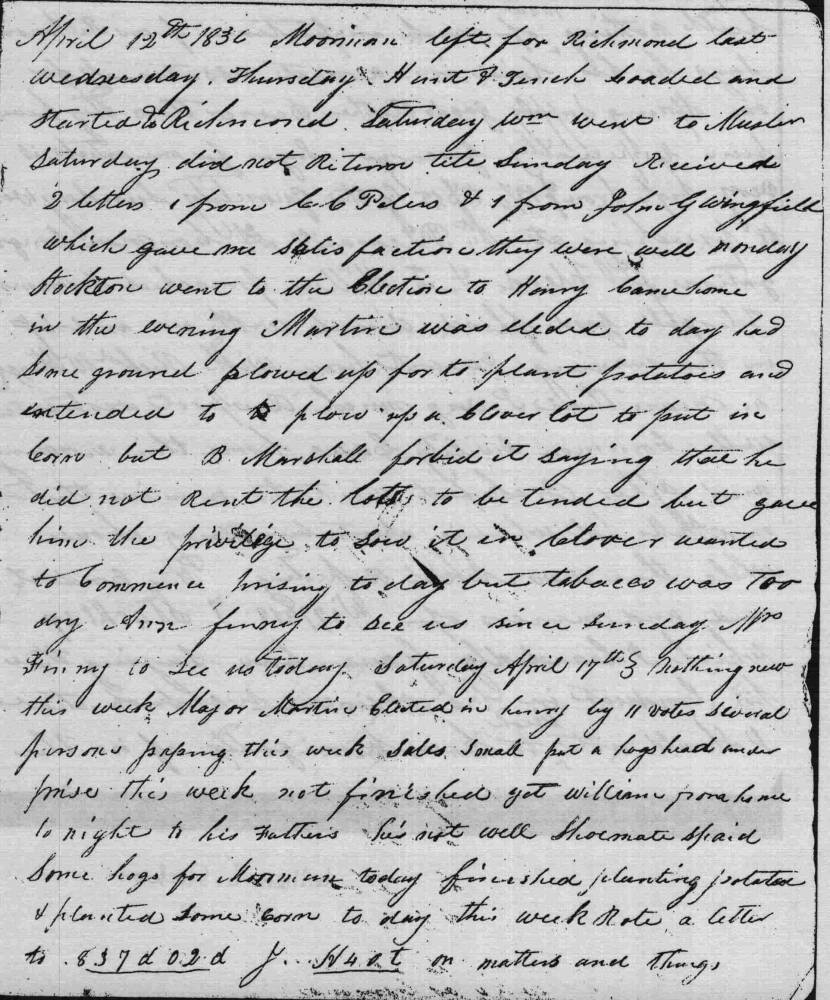 April 12th 1836 Moorman left for Richmond last
wednesday. Thursday Hunt & Tench Loaded and
Started to Richmond Saturday Wm went to Muster
Saturday did not Return till Sunday Received
2 letters 1 from C. C Peters & 1 from John G Wingfield
which gave me Satisfaction they were well monday
Stockton went to the Election to Henry Came home
in the evening Martin was elected to day had
Some ground plowed up for to plant potatoes and
intended to plow up a Clover lot to put in
Corn but B Marshall forbid it Saying that he
did not Rent the lots to be tended but gave
him the privilige to Sow it in Clover wanted
to Commence prising to day but tabacco was Too
dry Ann finny to See us since Sunday Mrs
Finny to See us today. Saturday April 17th } Nothing new
this week Major Martin Elected in henry by 11 votes Several
persons passing this week Sales Small put a hogshead under
prise this week not finished yet william from home
to night to his Fathers he's not well Shoemate Spaid
Some hogs for Moorman today finished planting potatoes
& planted Some Corn to day this week Rote a letter
to 837d02d J.. H40t on matters and things